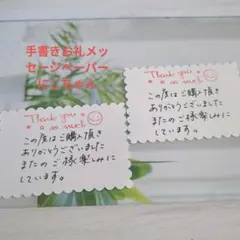 手書きお礼メッ
セージペーパー
にこちゃん
Thank you
so much
この度はご購入頂き
ありがとうございました
またのご縁楽しみに
しています。
Thank you
so much
この度はご購入頂き
ありがとうございました
またのご縁楽しみに
しています。